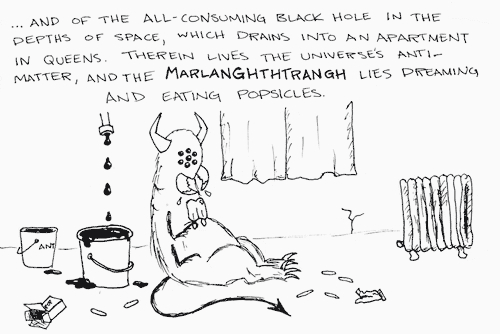 ... AND OF THE ALL-CONSUMING BLACK HOLE IN THE
DEPTHS OF SPACE, WHICH DRAINS INTO AN APARTMENT
IN QUEENS. THEREIN LIVES THE UNIVERSE'S ANTI-
MATTER, AND THE MARLANGHTHTRANGH LIES DREAMING
AND EATING POPSICLES.
ANT